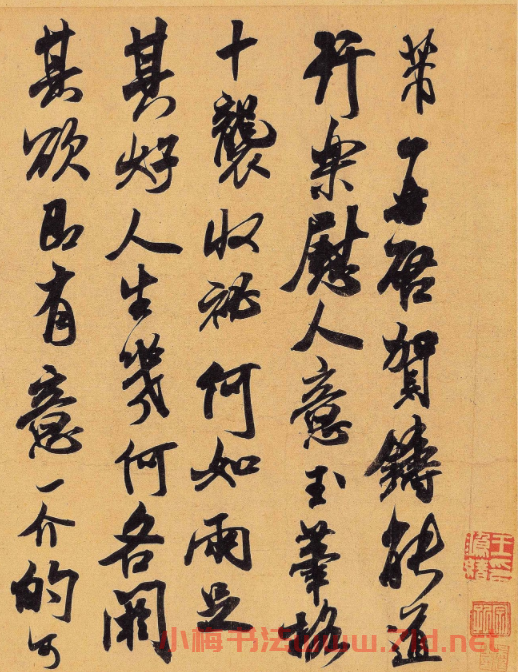 芾再啓賀鑄能道
行樂慰人意玉筆格
十襲收祕何如兩足
其好人生幾何各闕
其欲即有意一介的可
小梅书法www.7ld.net